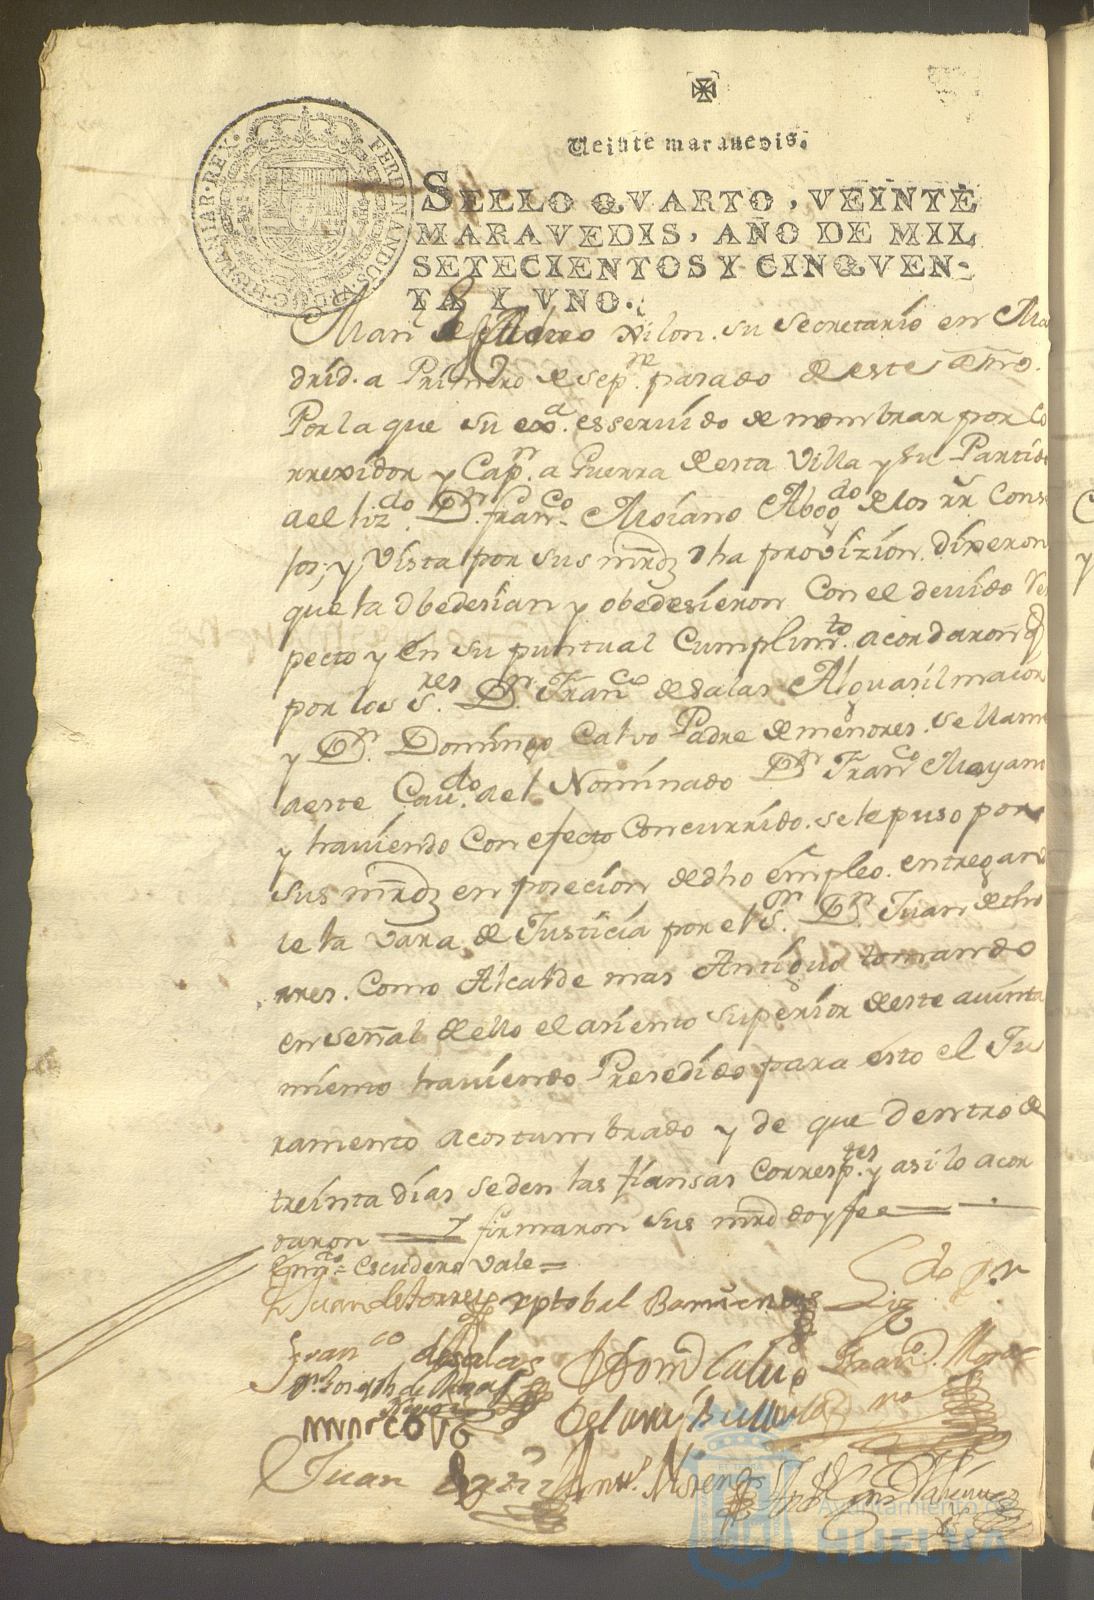 Veinte maravedis.
SELLO QVARTO, VEINTE
MARAVEDIS, AÑO DE MIL
SETECIENTOS Y CINQVEN-
TA Y VNO.
FERDINANDUS HISPANIAR. REX.
Nilon. su Secretario en Ma
drid. a Primero de sepre. pasado de este año.
Por la que su exa. es servido de nombrar por Co
rrexidor y Capn. a Guerra desta Villa y su Partido
ael lizdo. Dn. Franco. Moiano Abogdo. de los rr. Conse
jos; y Vista por sus mrds dha provizion. dixeron
que la obedesian y obedesieron Con el devido Res
pecto y en su puntual Cumplimto. acordaron q
por los Sres. Dn. Franco. de Salas Alguasil maior
y Dn. Domingo Calvo Padre de menores. se llame
a este Cavdo. ael Nominado Dn. Franco Moyano
y haviendo Con efecto Concurrido. se le puso por
sus mrds en posecion de dho empleo. entregando
le la vara de Justicia por el Sr. Dn. Juan de tho
rres. Como Alcalde mas Antiguo tomando
en señal de ello el asiento superior de este aiunta
miento haviendo Presedido para esto el Ju
ramento acostumbrado y de que dentro de
treinta dias se den las fiansas Corresptes. y asi lo acor
daron = Y firmaron sus mrds doy fee =
Escudero Vale =
Juan de torres Xptobal Barrientos Lizdo. Dn
Franco de Salas Domo Calvo Franco. Moia
Dn. Joseph de
no
Marco
Juan Moreno
Ayuntamiento de
HUELVA